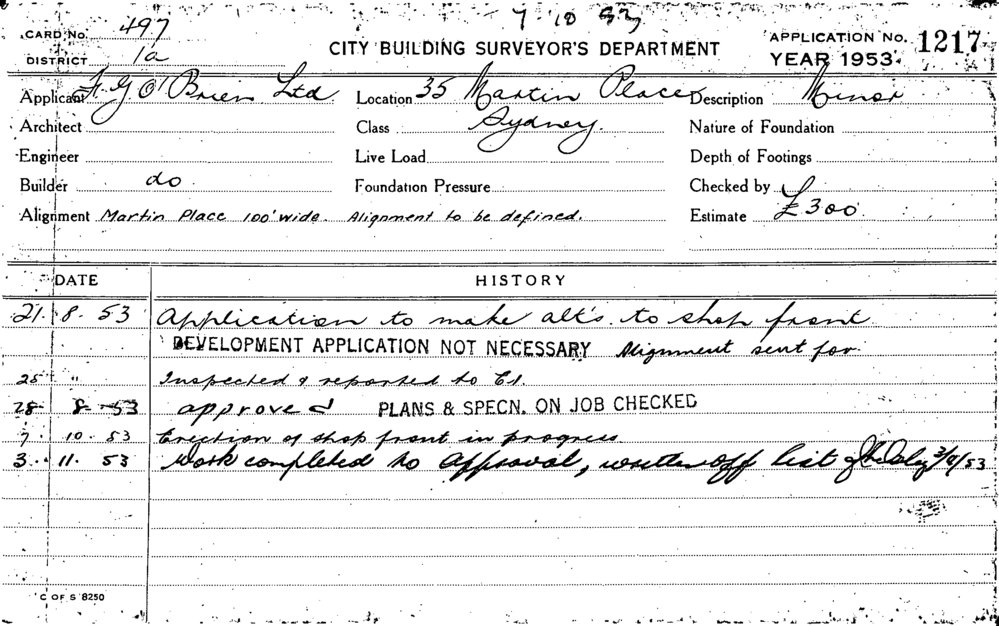 7 10 53
CARD No. 497
CITY BUILDING SURVEYOR'S DEPARTMENT
APPLICATION No. 1217
DISTRICT 1a
YEAR 1953.
Applicant F. G O'Brien Ltd Location 35 Martin Place Description Minor
Architect Class Sydney. Nature of Foundation
Engineer Live Load Depth of Footings
Builder do Foundation Pressure Checked by
Alignment Martin Place 100' wide. Alignment to be defined. Estimate £300
DATE HISTORY
21. 8. 53 Application to make alt's. to shop front
DEVELOPMENT APPLICATION NOT NECESSARY Alignment sent for
25 " Inspected & reported to
28 8 53 approved PLANS & SPECN. ON JOB CHECKED
7 10. 53 Erection of shop front in progress
3. 11. 53 Work completed to Approval, written off list
C OF S 8250